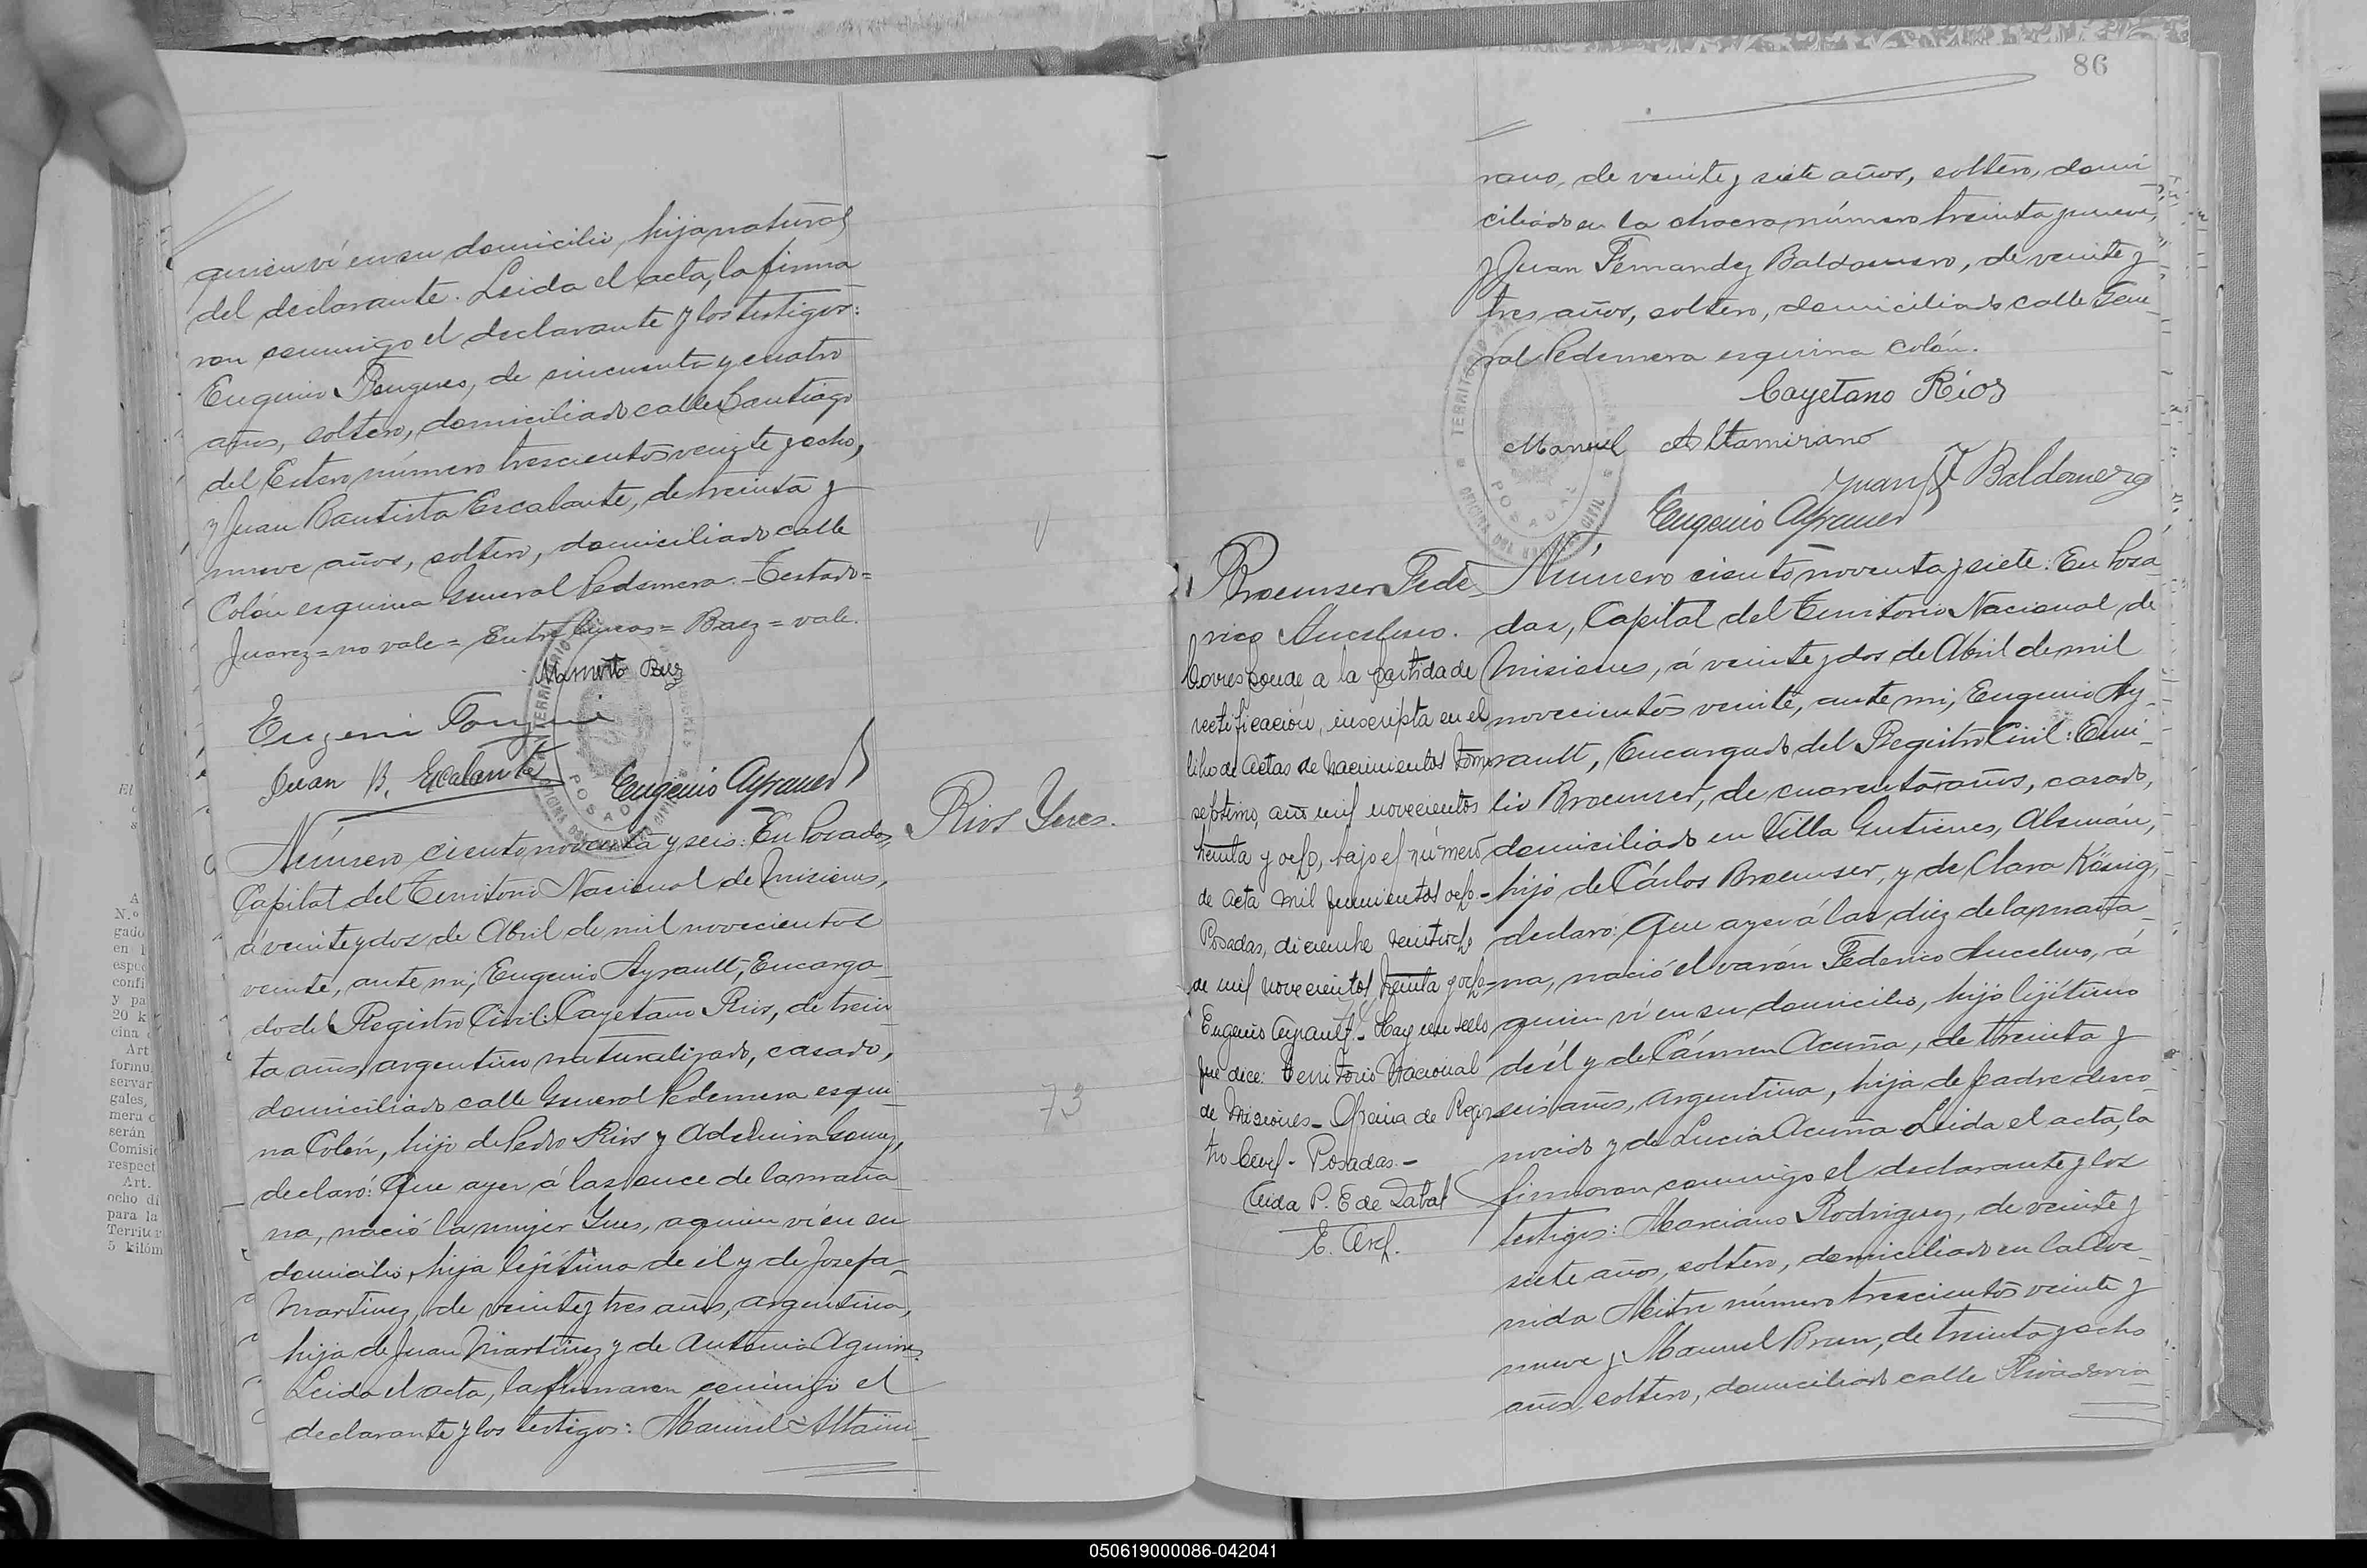 quien ví en su domicilio, hija natural
del declarante. Leida el acta, la firma
ron conmigo el declarante y los testigos:
Eugenio de cincuenta y cuatro
años, soltero, domiciliado calle Santiago
del Estero número trescientos veinte y ocho,
y Juan Bautista Escalante, de treinta y
nueve años, soltero, domiciliado calle
Colón esquina General Pedernera.-Testado=
Juarez=no vale=Entre líneas=Baez=vale.
Baez
Eugeni
Juan B. Escalante
Eugenio Ayrault
TERRITORIO
POSADAS
Rios Ynes.
Número ciento noventa y seis: En Posadas,
Capital del Territorio Nacional de Misiones,
á veinte y dos de Abril de mil novecientos
veinte, ante mi, Eugenio Ayrault, Encarga-
do del Registro Civil: Cayetano Rios, de trein-
ta años, argentino naturalizado, casado,
domiciliado calle General Pedernera esqui-
na Colón, hijo de Pedro Rios y Adelaira Gomez,
declaró: Que ayer á las once de la maña-
na, nació la mujer Ynes, a quien ví en su
domicilio, hija lejítima de él y de Josefa
Martinez, de veinte y tres años, argentina,
hija de Juan Martinez y de Antonia Aguirre.
Leida el acta, la firmaron conmigo el
declarante y los testigos: Manuel Altami-
73
86
rano, de veinte y siete años, soltero, domi
ciliado en la chacra número treinta y nueve,
y Juan Fernandez Baldomero, de veinte y
tres años, soltero, domiciliado calle Gene
ral Pedernera esquina Colón.
Cayetano Rios
Manuel Altamirano
Juan F Baldomero
Eugenio Ayrault
TERRITORIO
POSADAS
OFICINA DEL REGISTRO CIVIL
Broemser Fede-
rico Anselmo.
Corresponde a la partida de
rectificación, inscripta en el
libro de actas de nacimientos tomo
septimo, año mil novecientos
treinta y ocho, bajo el número
de acta mil quinientos ocho-
Posadas, diciembre veintiocho
de mil novecientos treinta y ocho-
Eugenio Ayrault- Hay un sello
que dice: Territorio Nacional
de Misiones- Oficina de Regis
tro Civil- Posadas.-
P. E de Zabal
E.
Número ciento noventa y siete: En Posa-
das, Capital del Territorio Nacional de
Misiones, á veinte y dos de Abril de mil
novecientos veinte, ante mi, Eugenio Ay-
rault, Encargado del Registro Civil: Emi-
lio Broemser, de cuarenta años, casado,
domiciliado en Villa Gutierres, Alemán,
hijo de Cárlos Broemser, y de Clara König,
declaró: Que ayer á las diez de la maña-
na, nació el varón Federico Anselmo, á
quien ví en su domicilio, hijo lejítimo
de él y de Cármen Acuña, de treinta y
seis años, argentina, hija de padre desco-
nocido y de Lucia Acuña. Leida el acta, la
firmaron conmigo el declarante y los
testigos: Marciano Rodriguez, de veinte y
siete años, soltero, domiciliado en la Ave-
nida Mitre número trescientos veinte y
nueve y Manuel Brun, de treinta y ocho
años, soltero, domiciliado calle Rivadavia
050619000086-042041